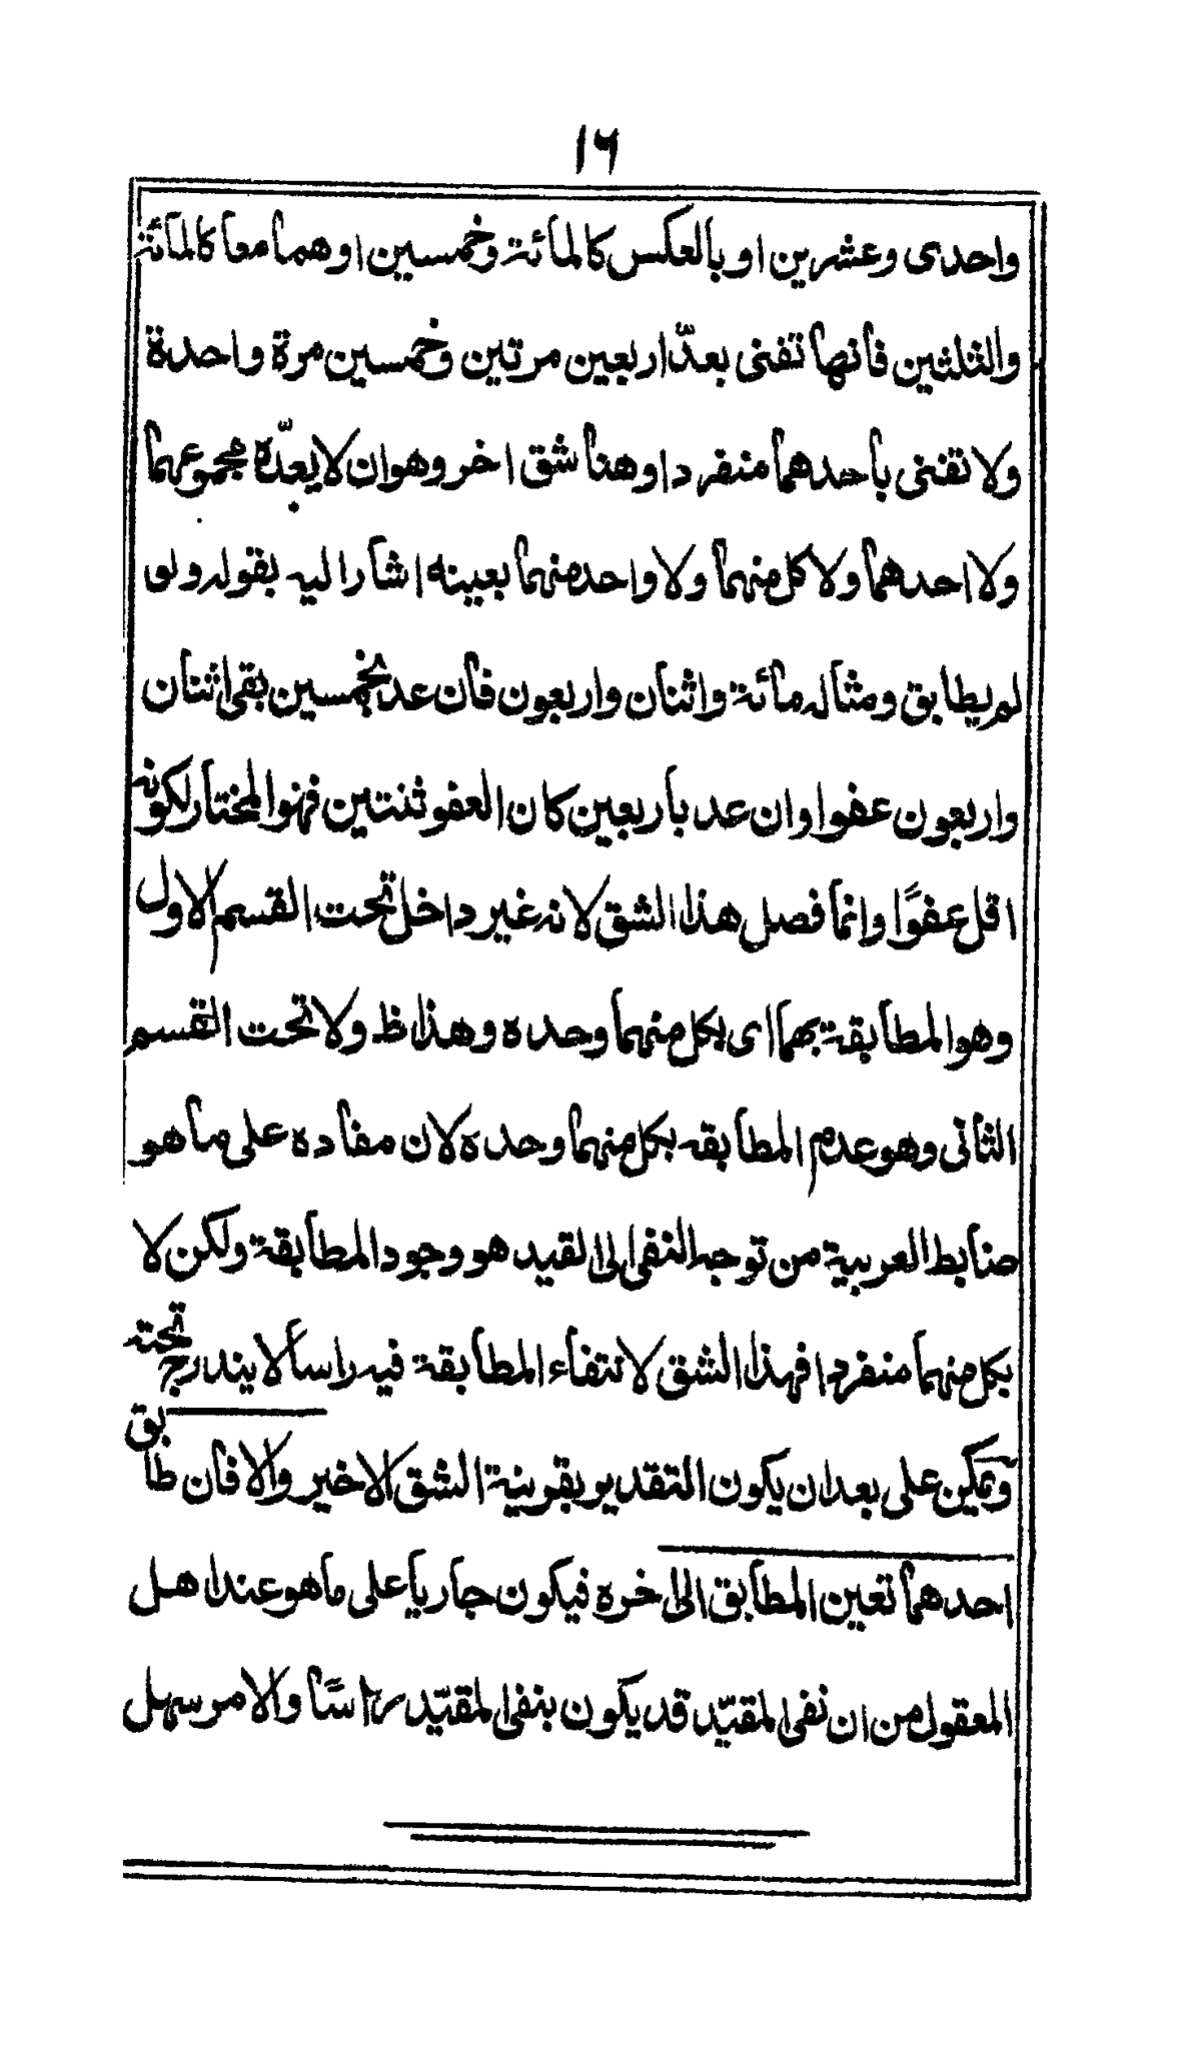 ١٦
واحدى وعشرين او بالعكس كالمائة وخمسين او هما معا كالمائة
والثلثين فانها تفنى بعدّ اربعين مرتين وخمسين مرة واحدة
ولا تفنى باحدهما منفردا وهنا شق اخر وهو ان لا يعدّه مجموعهما
ولا احدهما ولا كل منهما ولا واحد منهما بعينه اشار اليه بقوله ولو
لم يطابق ومثاله مائة واثنان واربعون فان عد بخمسين بقى اثنان
واربعون عفوا وان عد باربعين كان العفو ثنتين فهو المختار لكونه
اقل عفوًا وانما فصل هذا الشق لانه غير داخل تحت القسم الاول
وهو المطابقة بهما اى بكل منهما وحده وهذا ظ ولا تحت القسم
الثانى وهو عدم المطابقه بكل منهما وحده لان مفاده على ما هو
ضابط العربية من توجه النفى الى القيد هو وجود المطابقة ولكن لا
بكل منهما منفردا فهذا الشق لانتفاء المطابقة فيه راسا لا يندرج تحته
ويمكن على بعد ان يكون التقدير بقرينة الشق الاخير والا فان طابق
احدهما تعين المطابق الى اخره فيكون جاريا على ما هو عند اهل
المعقول من ان نفى المقيّد قد يكون بنفى المقيّد راسًا والامر سهل